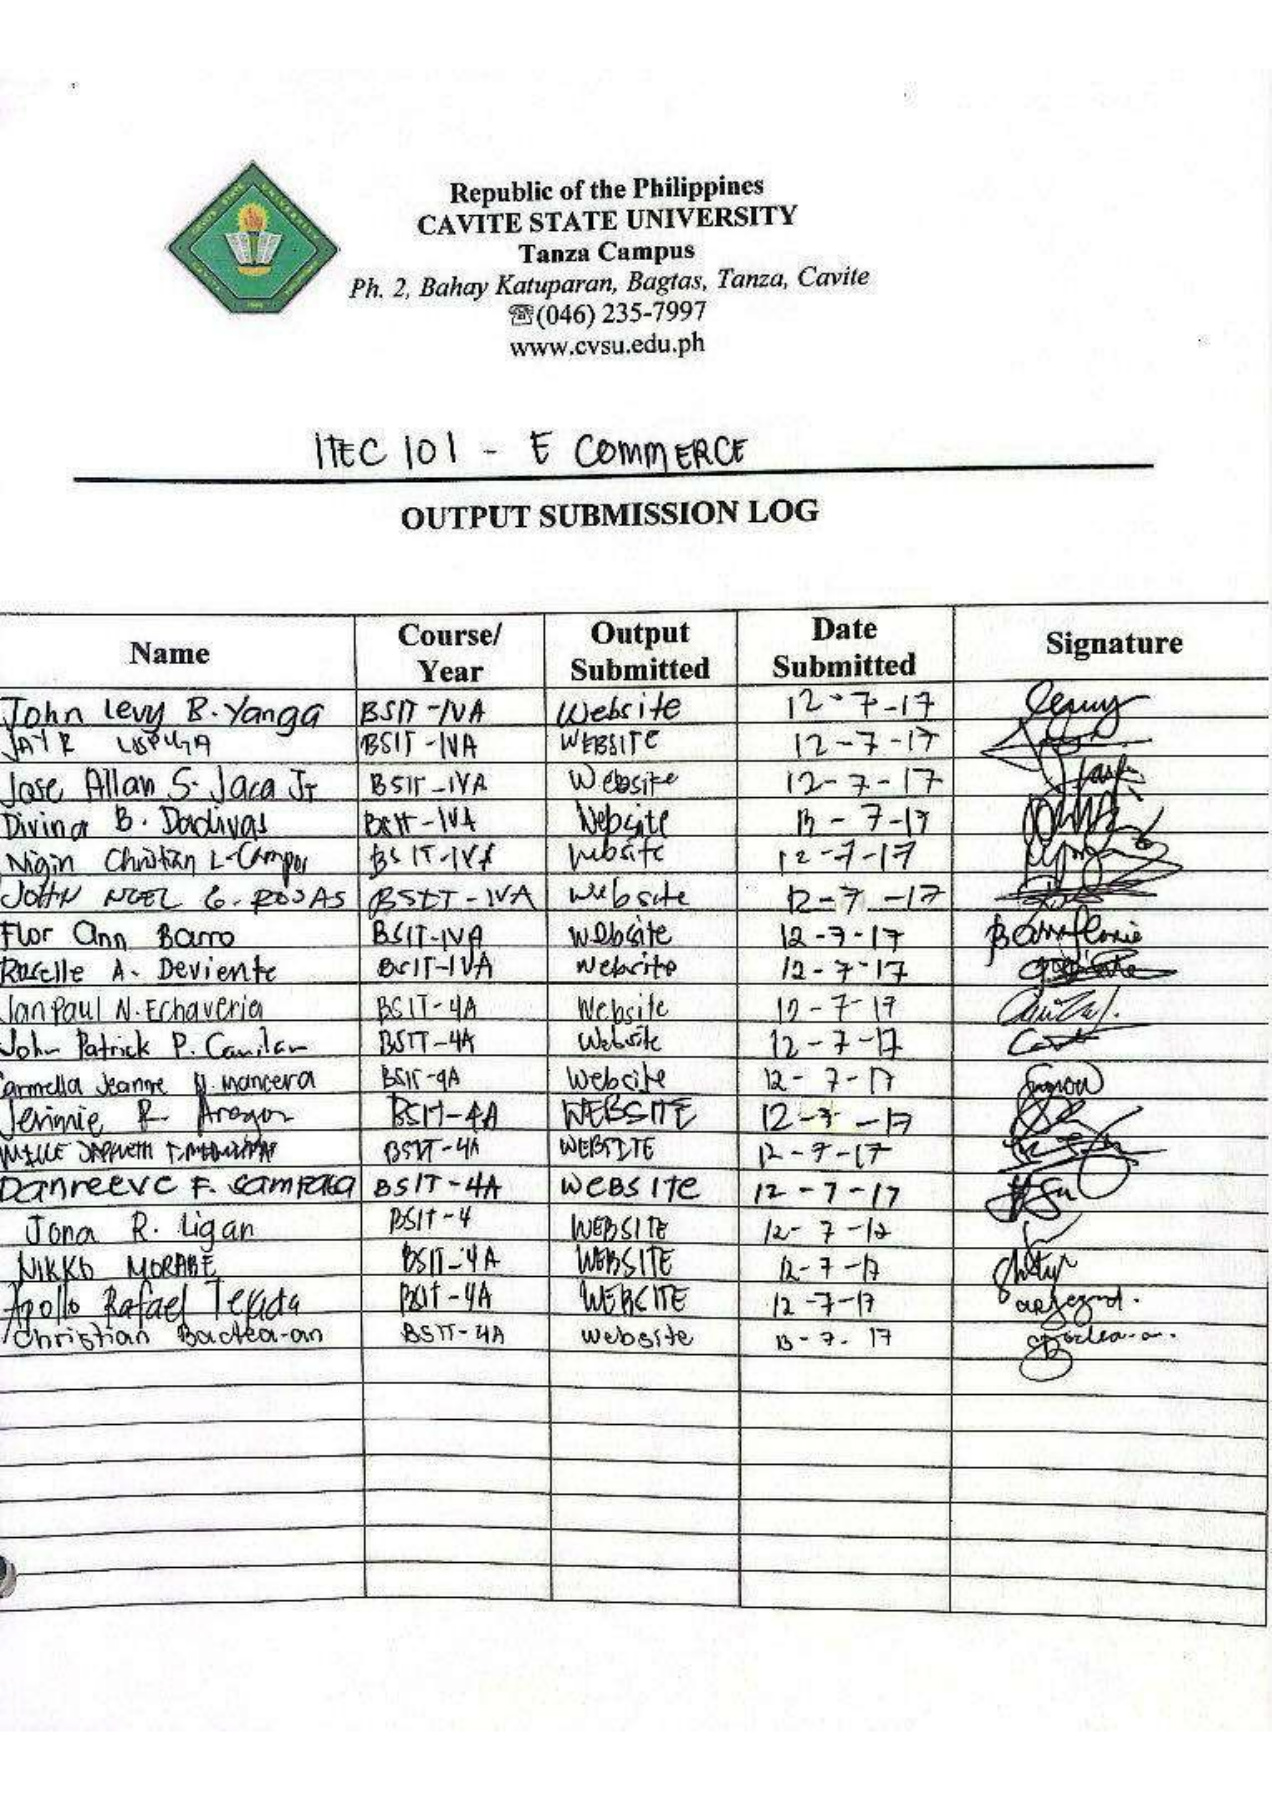 Republic of the Philippines
CAVITE STATE UNIVERSITY
Tanza Campus
Ph. 2, Bahay Katuparan, Bagtas, Tanza, Cavite
☏(046) 235-7997
www.cvsu.edu.ph
ITEC 101 - E COMMERCE
OUTPUT SUBMISSION LOG
Name Course/ Year Output Submitted Date Submitted Signature
John Levy B. Yanga BSIT-IVA Website 12-7-17
JAY R BSIT-IVA WEBSITE 12-7-17
Jose Allan S. Jaca Jr BSIT-IVA Website 12-7-17
Divina B. Dadivas BSIT-IVA Website 12-7-17
Nigin Christian L. Campos BSIT-IVA Website 12-7-17
JOHN NOEL G. ROJAS BSIT-IVA Website 12-7-17
Flor Ann Barro BSIT-IVA Website 12-7-17
Roselle A. Deviente BSIT-IVA Website 12-7-17
Jan Paul N. Echaveria BSIT-4A Website 12-7-17
John Patrick P. Canilan BSIT-4A Website 12-7-17
Carmella Jeanne N. Mancera BSIT-4A Website 12-7-17
Jerinnie R. Aragon BSIT-4A WEBSITE 12-7-17
BSIT-4A WEBSITE 12-7-17
Danreeve F. BSIT-4A WEBSITE 12-7-17
Jona R. Ligan BSIT-4 WEBSITE 12-7-17
NIKKO MORABE BSIT-4A WEBSITE 12-7-17
Apollo Rafael Tejada BSIT-4A WEBSITE 12-7-17
Christian Bactea-an BSIT-4A website 12-7-17